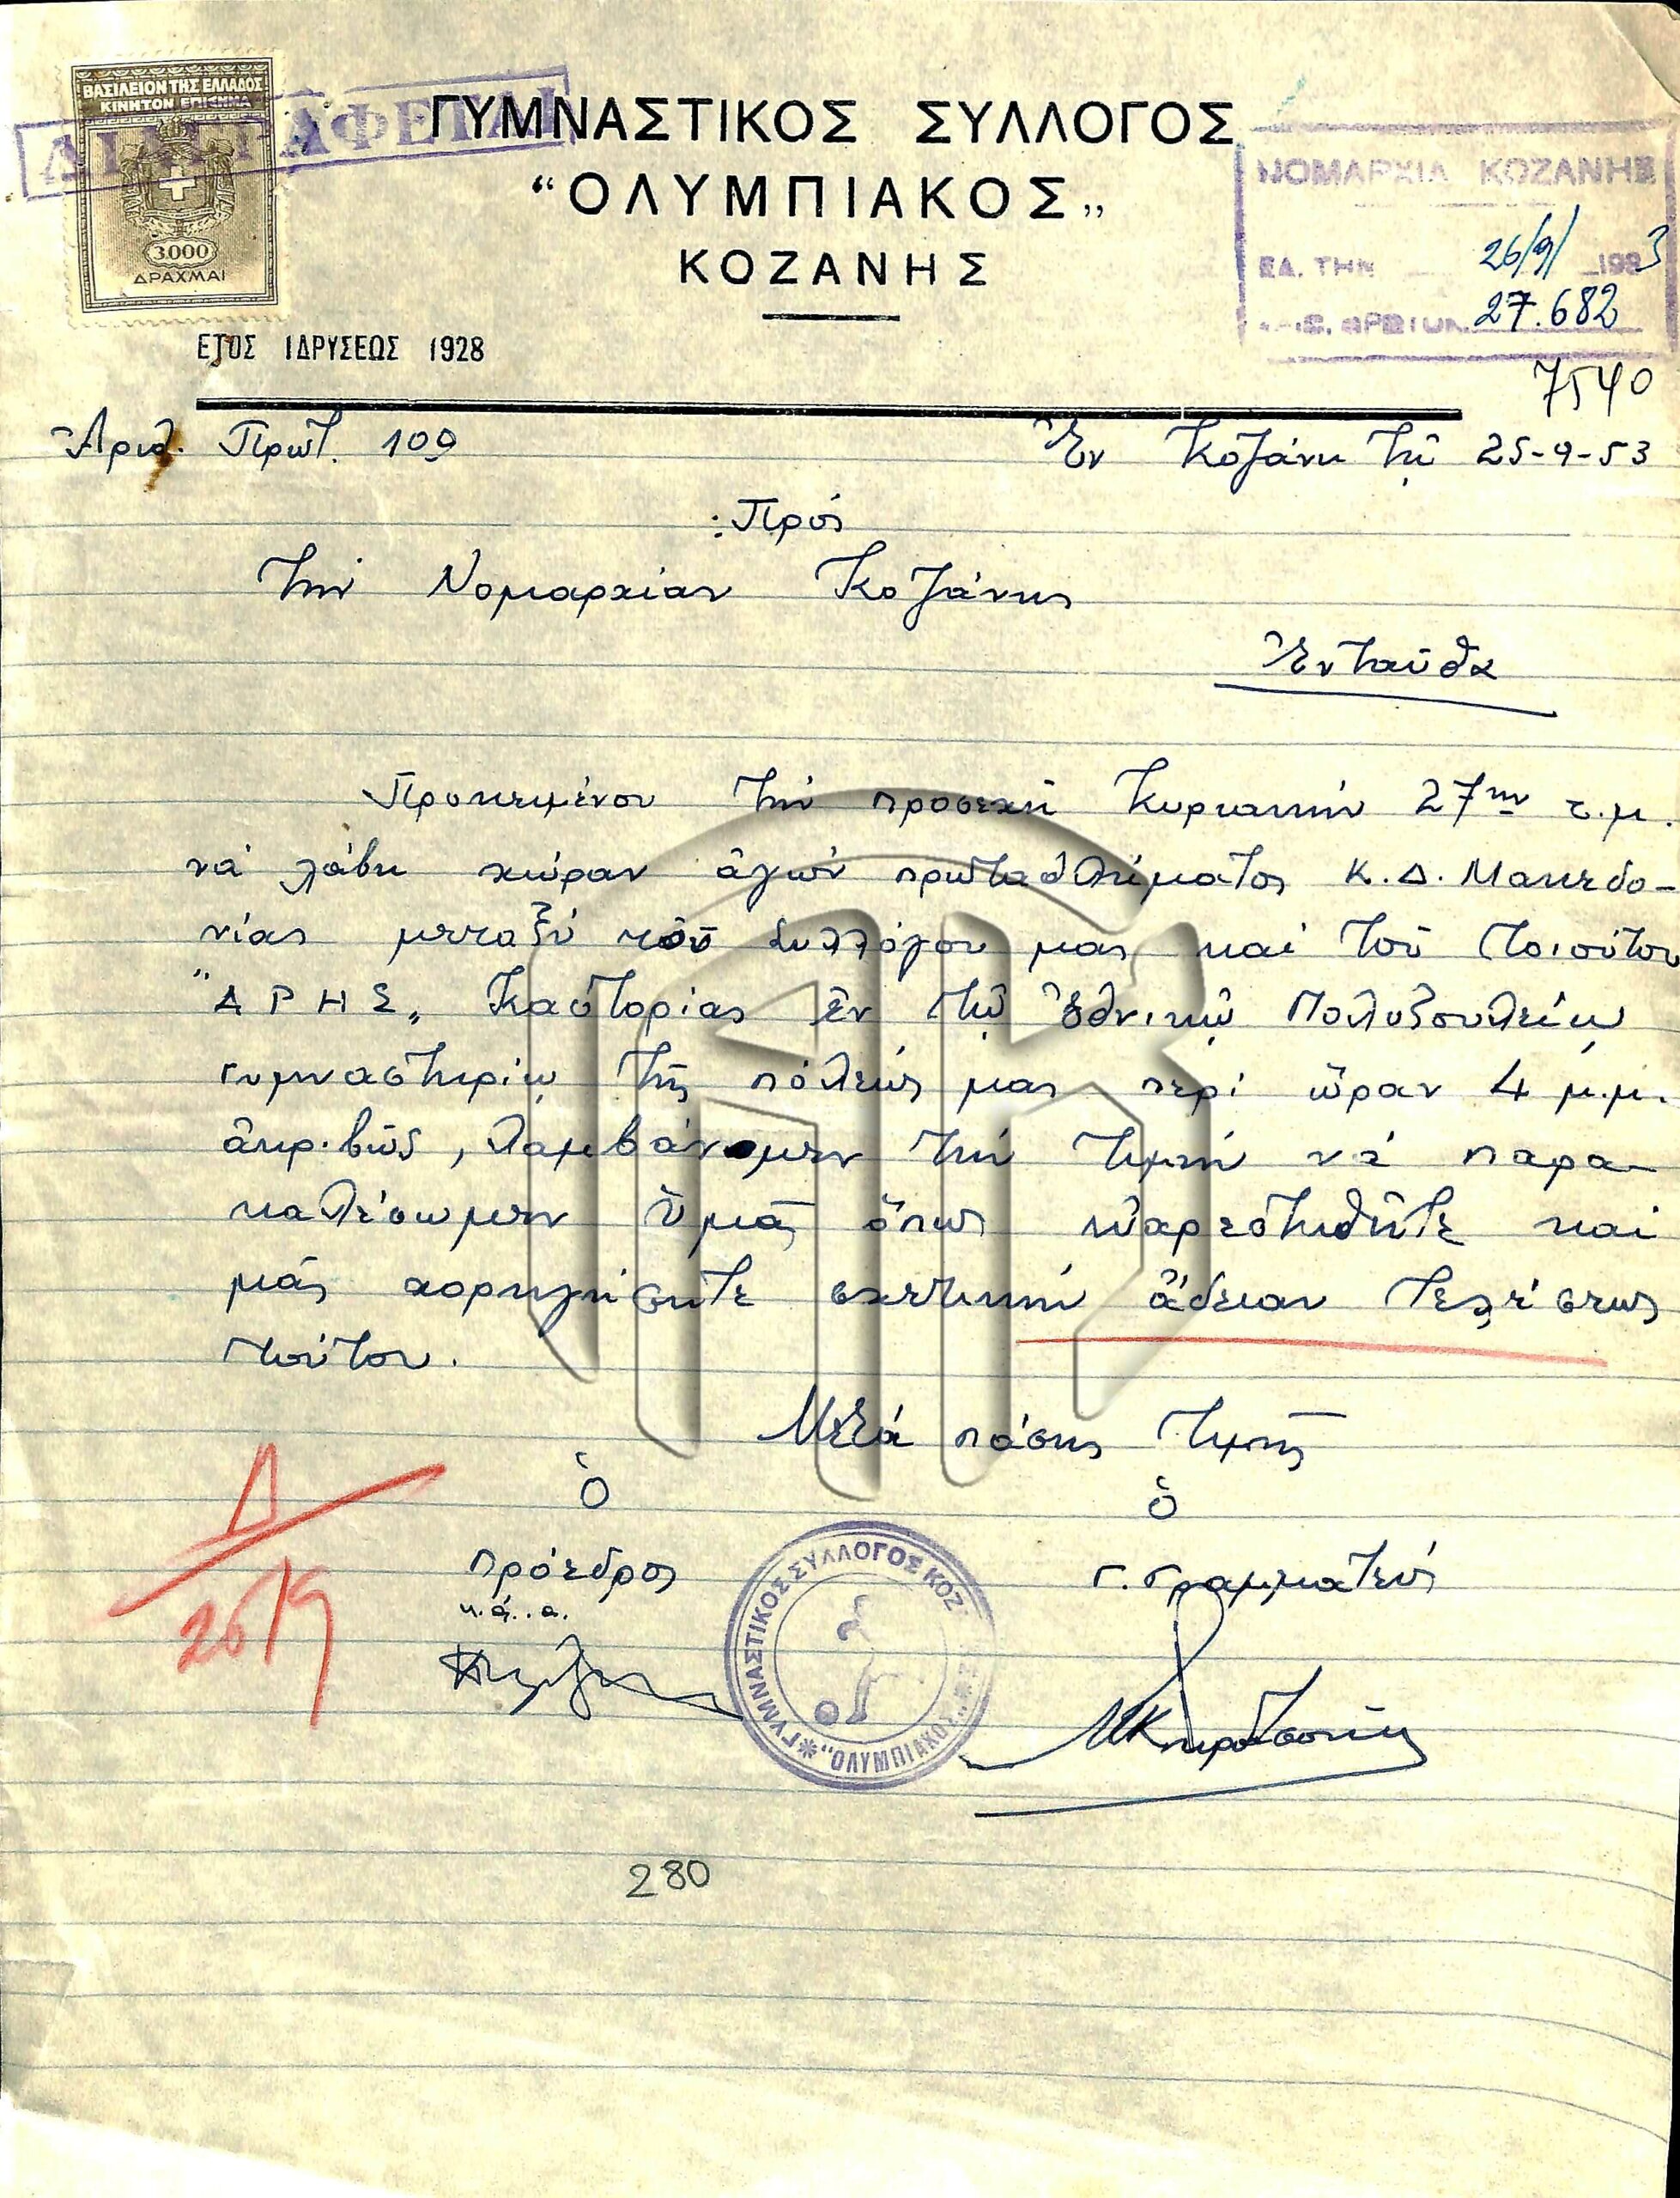 ΒΑΣΙΛΕΙΟΝ ΤΗΣ ΕΛΛΑΔΟΣ
ΚΙΝΗΤΟΝ ΕΠΙΣΗΜΑ
3.000
ΔΡΑΧΜΑΙ
ΓΥΜΝΑΣΤΙΚΟΣ ΣΥΛΛΟΓΟΣ
“ΟΛΥΜΠΙΑΚΟΣ„
ΚΟΖΑΝΗΣ
ΕΤΟΣ ΙΔΡΥΣΕΩΣ 1928
ΝΟΜΑΡΧΙΑ ΚΟΖΑΝΗΣ
ΕΛ. ΤΗΝ 26/9/ 1953
27.682
7540
Ἀριθ. Πρωτ. 109
Ἐν Κοζάνη τῇ 25-9-53
Πρός
Τήν Νομαρχίαν Κοζάνης
Ἐνταῦθα
Προκειμένου τήν προσεχῆ Κυριακήν 27ην τ.μ.
νά λάβη χώραν ἀγών πρωταθλήματος Κ.Δ. Μακεδο-
νίας μεταξύ τοῦ Συλλόγου μας καί τοῦ τοιούτου
"ΑΡΗΣ„ Καστορίας ἐν τῷ Ἐθνικῷ
γυμναστηρίῳ τῆς πόλεώς μας περί ὥραν 4 μ.μ.
ἀκριβῶς, λαμβάνομεν τήν τιμήν νά παρα-
καλέσωμεν Ὑμᾶς ὅπως εὐαρεστηθῆτε καί
μᾶς χορηγήσητε σχετικήν ἄδειαν τελέσεως
τούτου.
Μετά πάσης τιμῆς
Ὁ
Πρόεδρος
κ.ἀ.α.
Ὁ
Γ. Γραμματεύς
Δ
26/9
ΓΥΜΝΑΣΤΙΚΟΣ ΣΥΛΛΟΓΟΣ ΚΟΖ
„ΟΛΥΜΠΙΑΚΟΣ„
280